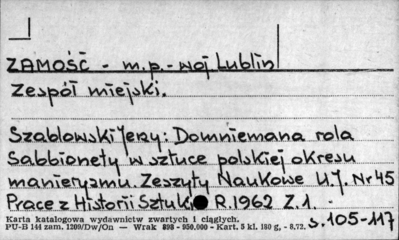 ZAMOŚĆ - m.p. - woj Lublin
Zespół miejski.
Szablowski Jerzy: Domniemana rola
Sabbionety w sztuce polskiej okresu
manieryzmu. Zeszyty Naukowe U.J. Nr 45
Prace z Historii Sztuki R.1962 Z.1.
s.105-117
Karta katalogowa wydawnictw zwartych i ciągłych.
PU-B 144 zam. 1209/Dw/On — Wrak 898 - 950.000 - Kart. 5 kl. 180 g, - 8.72.